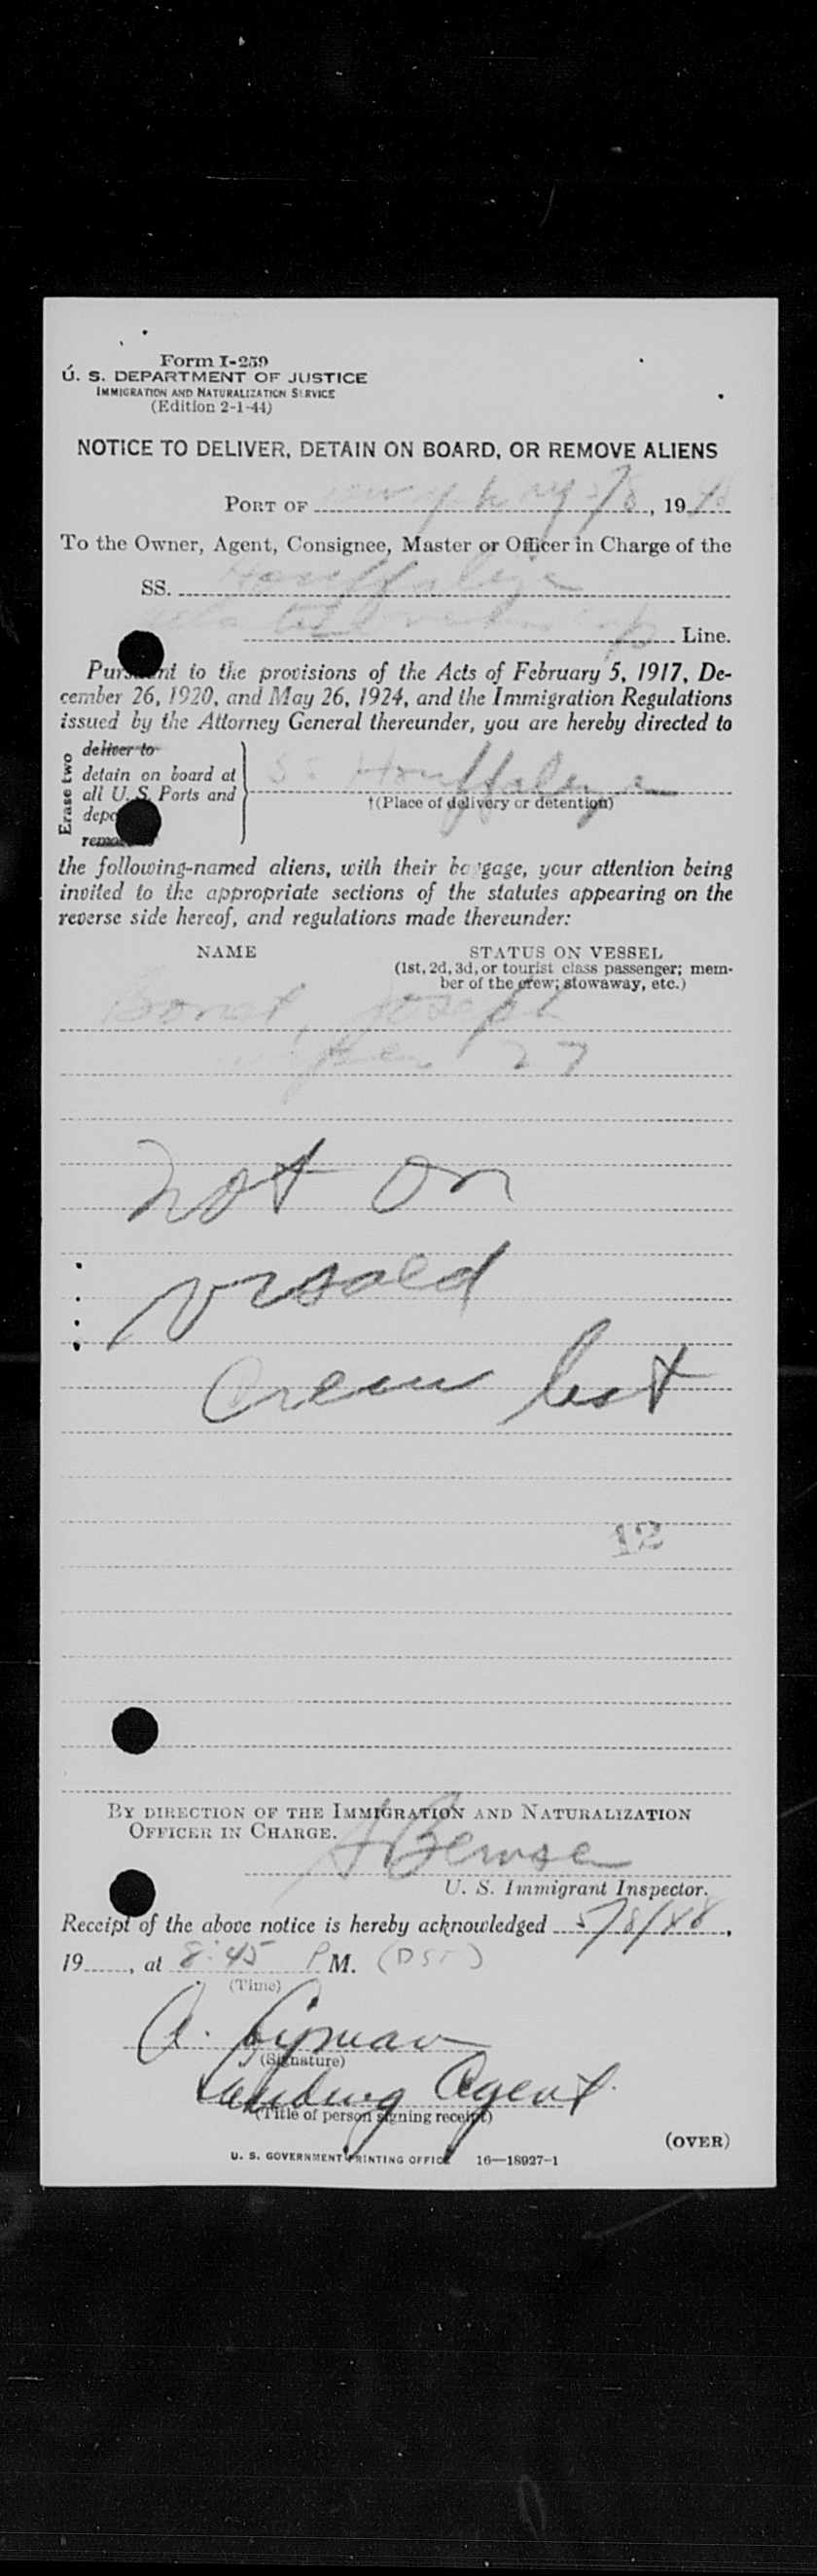 Form I-259
U. S. DEPARTMENT OF JUSTICE
IMMIGRATION AND NATURALIZATION SERVICE
(Edition 2-1-44)
NOTICE TO DELIVER, DETAIN ON BOARD, OR REMOVE ALIENS
PORT OF 5/8, 19 48
To the Owner, Agent, Consignee, Master or Officer in Charge of the
SS. Houffalize
Line.
Pursuant to the provisions of the Acts of February 5, 1917, De-
cember 26, 1920, and May 26, 1924, and the Immigration Regulations
issued by the Attorney General thereunder, you are hereby directed to
Erase two
deliver to
detain on board at
all U. S. Ports and
SS Houffalize
†(Place of delivery or detention)
the following-named aliens, with their baggage, your attention being
invited to the appropriate sections of the statutes appearing on the
reverse side hereof, and regulations made thereunder:
NAME STATUS ON VESSEL
(1st, 2d, 3d, or tourist class passenger; mem-
ber of the crew; stowaway, etc.)
Bonet, Joseph
27
not on
visaed
Crew list
12
BY DIRECTION OF THE IMMIGRATION AND NATURALIZATION
OFFICER IN CHARGE.
U. S. Immigrant Inspector.
Receipt of the above notice is hereby acknowledged 5/8/48,
19, at 8:45 P M. (DST)
(Time)
A. Lyman
(Signature)
Landing Agent.
(Title of person signing receipt)
(OVER)
U. S. GOVERNMENT PRINTING OFFICE 16—18927-1